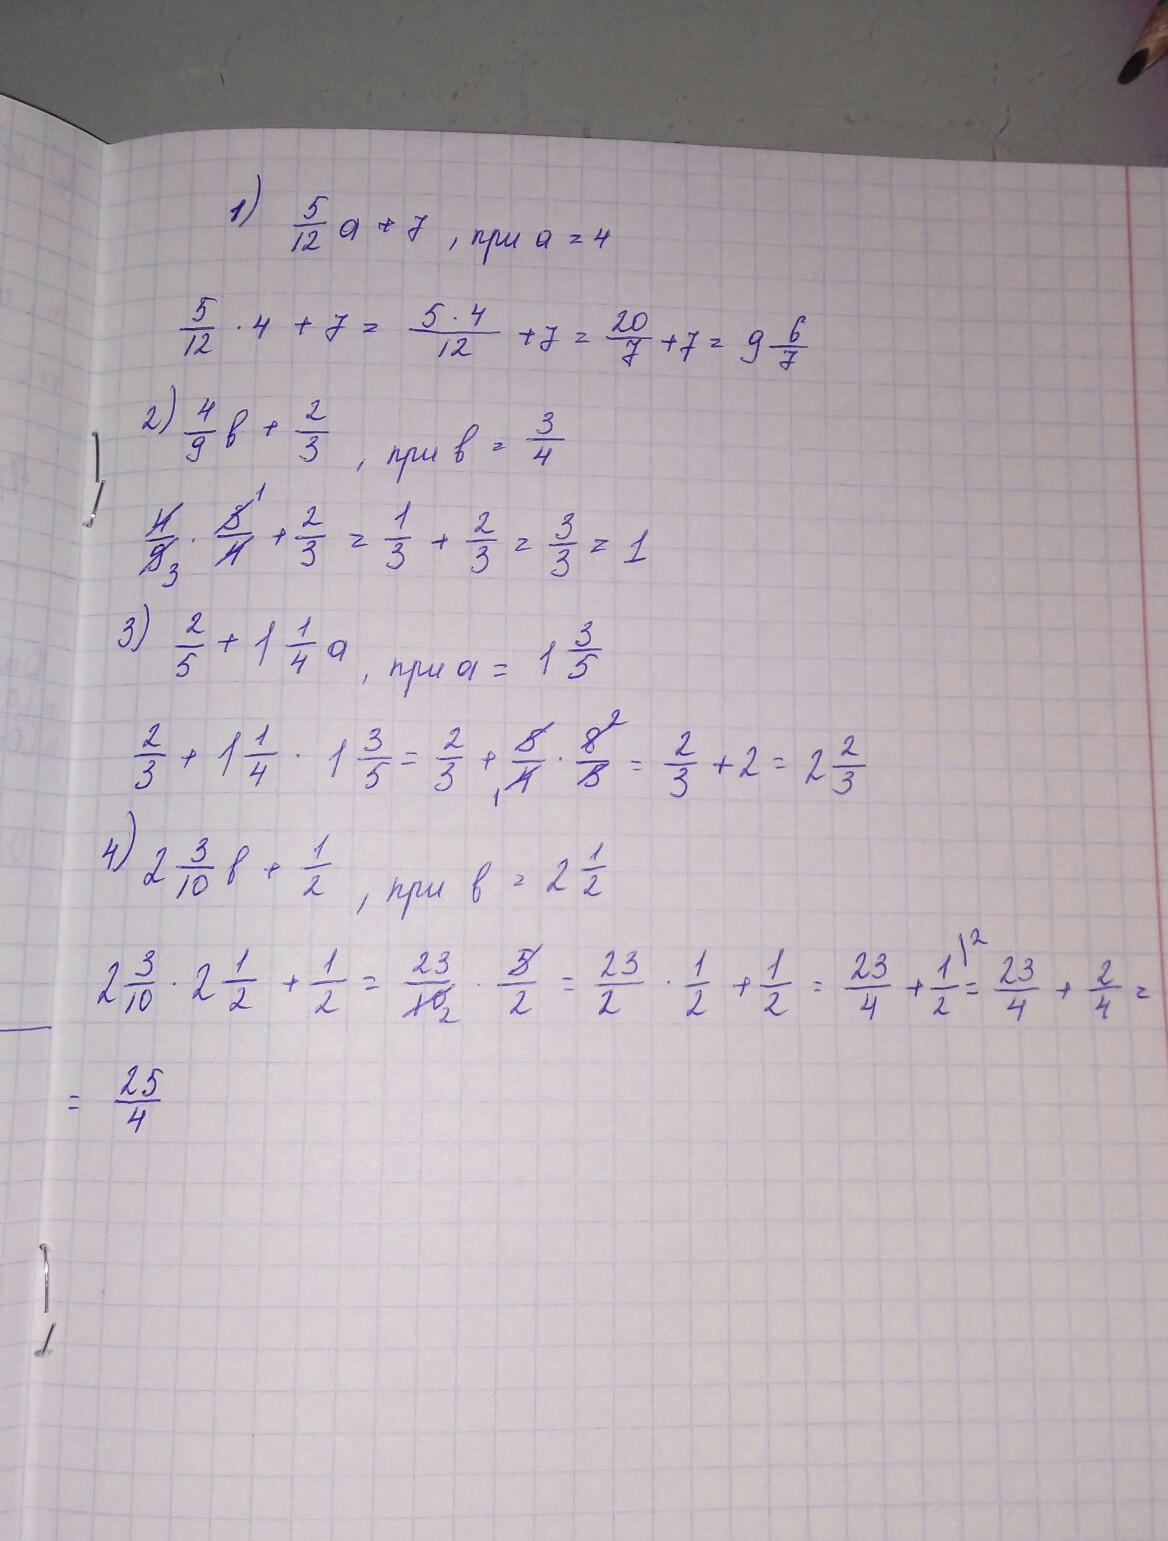 1) 5/12 a + 7, при a = 4
5/12 · 4 + 7 = 5 · 4/12 + 7 = 20/7 + 7 = 9 6/7
2) 4/9 в + 2/3, при в = 3/4
4/9 3 · 3 1/4 + 2/3 = 1/3 + 2/3 = 3/3 = 1
3) 2/5 + 1 1/4 a, при a = 1 3/5
2/3 + 1 1/4 · 1 3/5 = 2/3 + 5/4 1 · 8 2/5 = 2/3 + 2 = 2 2/3
4) 2 3/10 в + 1/2, при в = 2 1/2
2 3/10 · 2 1/2 + 1/2 = 23/10 2 · 5/2 = 23/2 · 1/2 + 1/2 = 23/4 + 1/2 |2 = 23/4 + 2/4 =
= 25/4